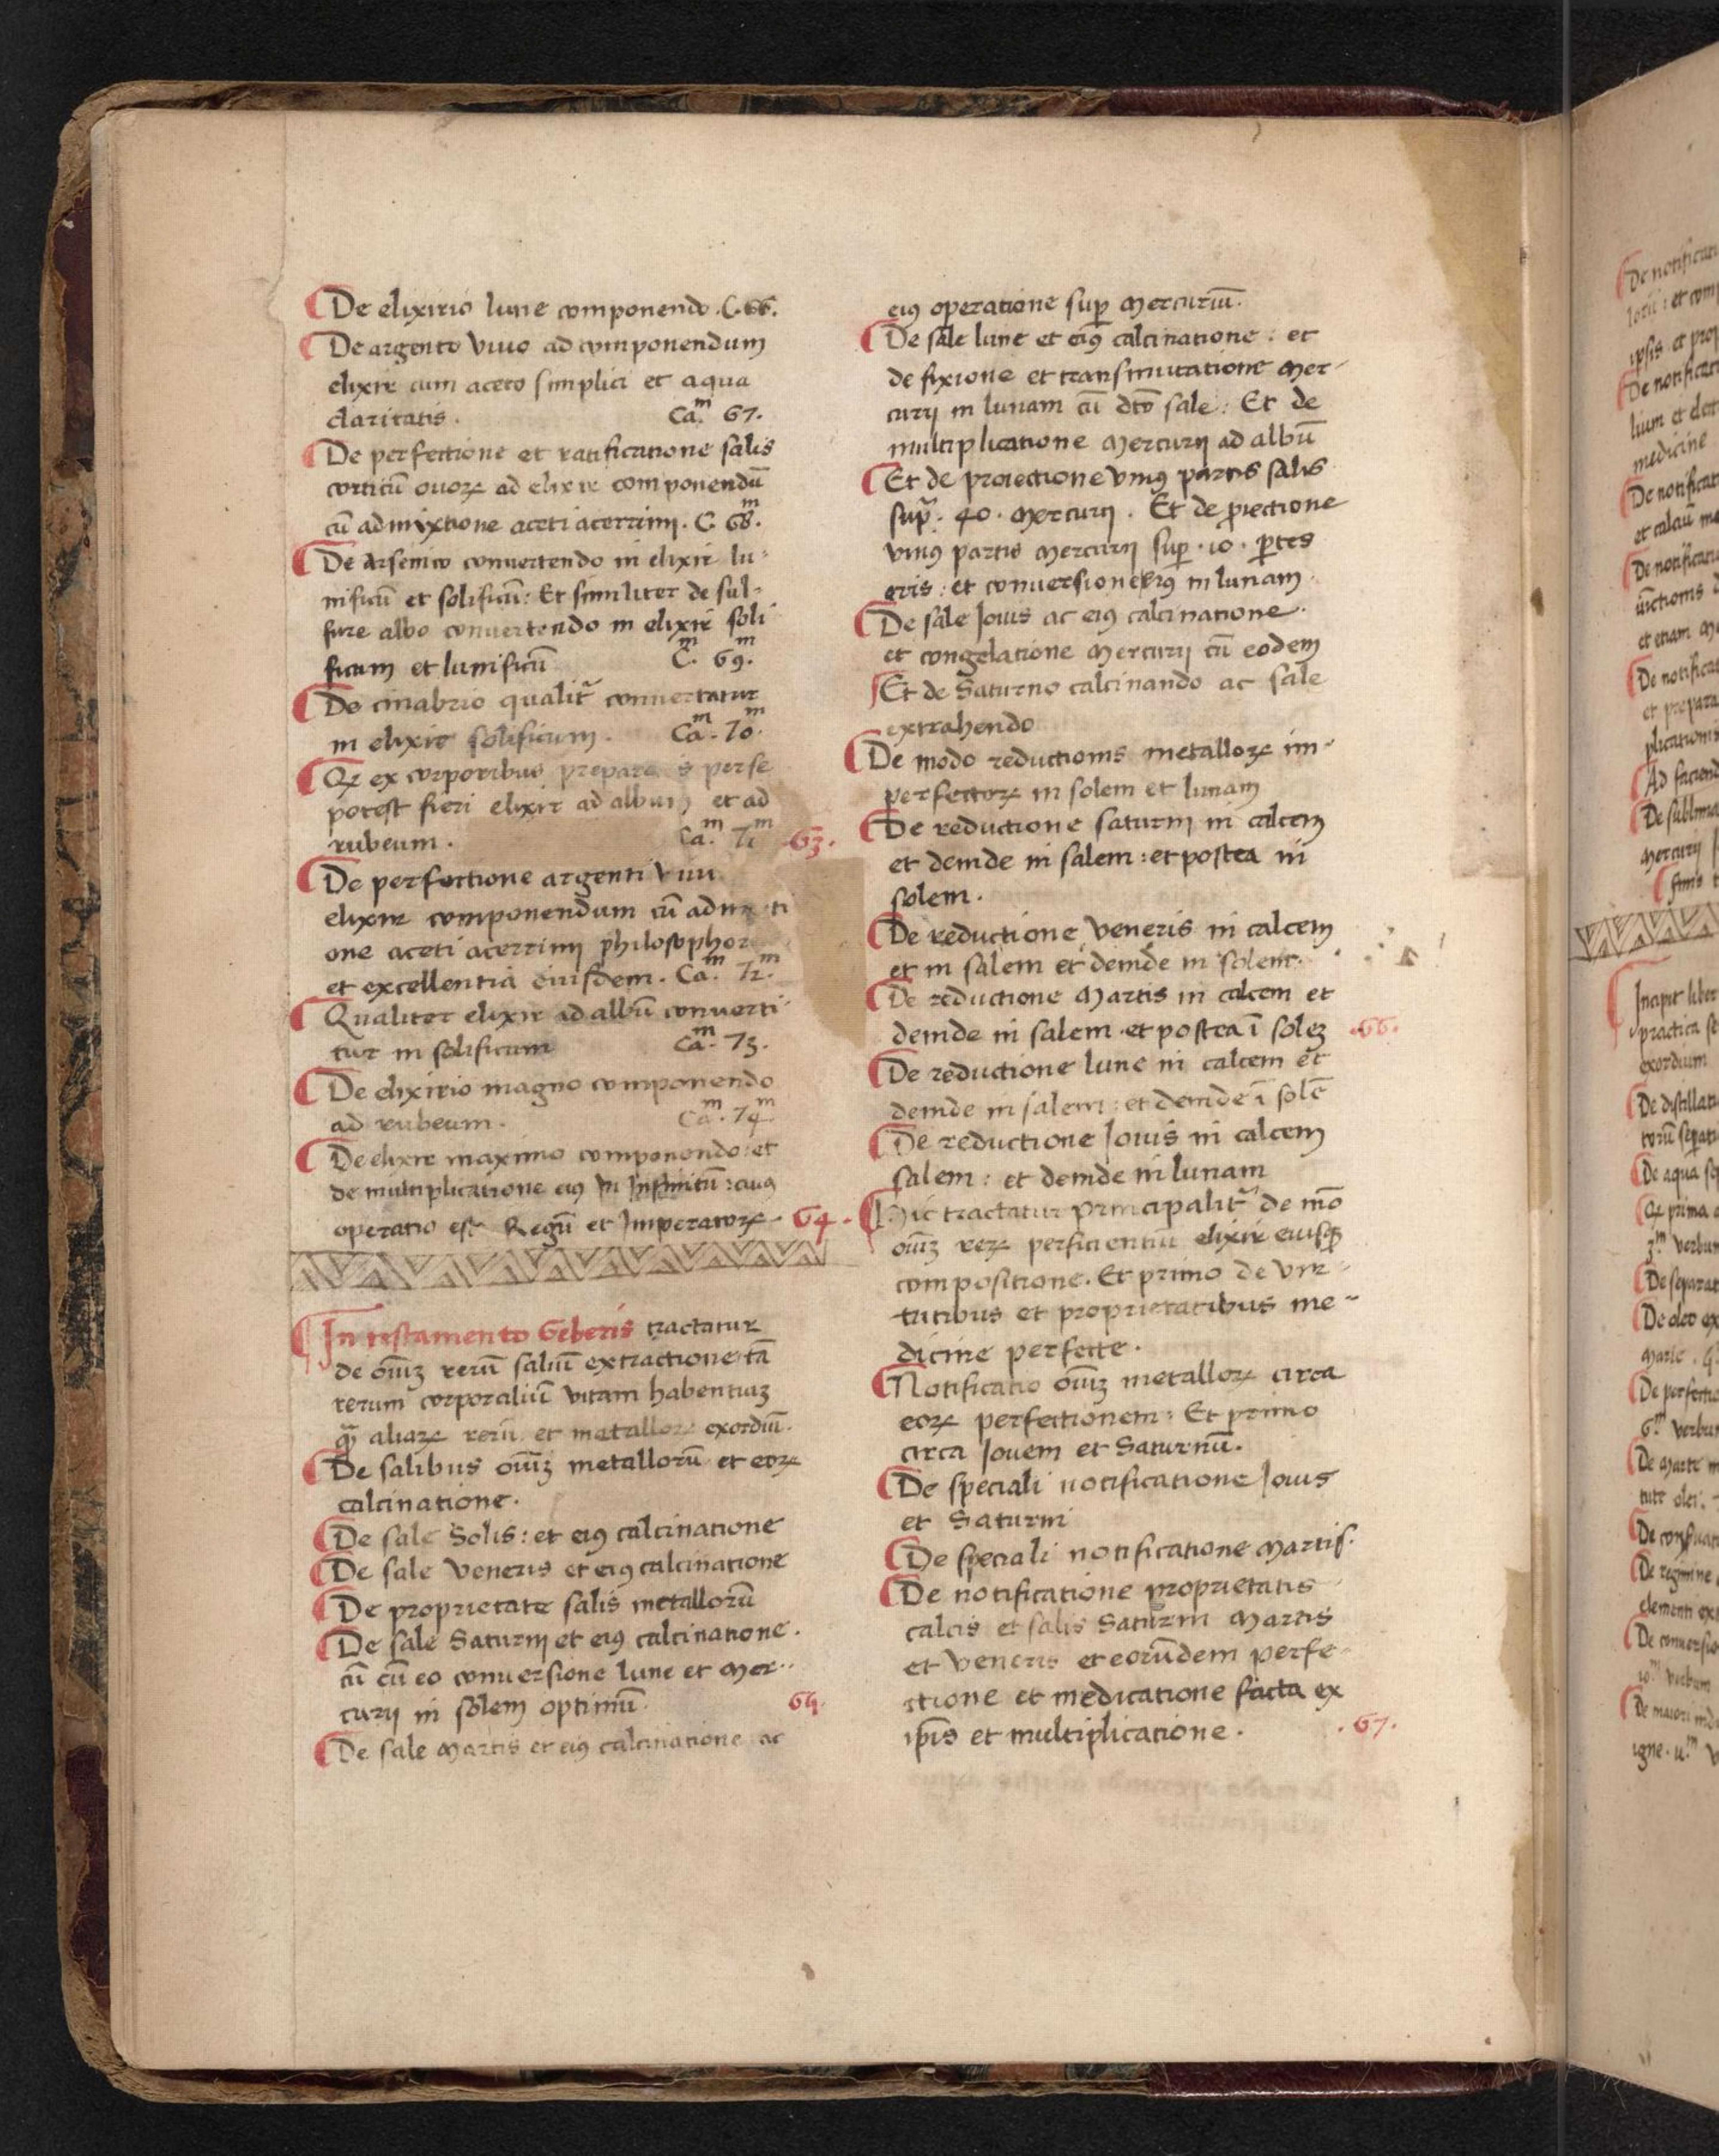 De elixirio lune componendo. C. 66.
De argento vivo ad componendum
elixir cum aceto simplici et aqua
claritatis. Caᵐ. 67.
De perfectione et ratificatione salis
corticū ovoꝝ ad elixir componendū
cū admixtione aceti acerrimi. C. 68ᵐ.
De Arsenico convertendo in elixir lu-
nificū et solificū: Et similiter de sul-
fure albo convertendo in elixir soli
ficum et lunificū Cᵐ. 69ᵐ.
De cinabrio qualit̃ convertatur
in elixir solificum. Caᵐ. 70ᵐ.
Qꝫ ex corporibus prepara s per se
potest fieri elixir ad album et ad
rubeum. Caᵐ. 71ᵐ .63.
De perfectione argenti vivi
elixir componendum cū admi ti
one aceti acerrimi philosophor
et excellentia eiusdem. Caᵐ. 72ᵐ.
Qualiter elixir ad albū converti
tur in solificum Caᵐ. 73.
De elixirio magno componendo
ad rubeum. Caᵐ. 74ᵐ
De elixir maximo componendo: et
de multiplicatione eiꝰ in Infinitū: cuiꝰ
operatio est Regū et Imperatoꝝ. 64.
In testamento Geberis tractatur
de oīuꝫ rerū saliū extractione tā
rerum corporaliū vitam habentiuꝫ
qꝫ̃ aliaꝝ rerū et metalloꝝ exordiū.
De salibus oīuꝫ metallorū et eoꝝ
calcinatione.
De sale Solis: et eiꝰ calcinatione
De sale Veneris et eiꝰ calcinatione
De proprietate salis metallorū
De sale Saturnj et eiꝰ calcinatione.
cū cū eo conversione lune et Mer-
curij in solem optimū. 65.
De sale Martis et eiꝰ calcinatione ac
eiꝰ operatione suꝑ Mercuriū.
De sale lune et eiꝰ calcinatione: et
de fixione et transmutatione Mer-
curij in lunam cū dc̄o sale: Et de
multiplicatione Mercurij ad albū
Et de proiectione uniꝰ partis salis
sup̃. 40. Mercurij. Et de ꝓiectione
uniꝰ partis Mercurij suꝑ .10. ꝑtes
eris: et conversione eiꝰ in lunam.
De sale Jovis ac eiꝰ calcinatione.
et congelatione Mercurij cū eodem
Et de Saturno calcinando ac sale
extrahendo
De modo reductionis metalloꝝ im-
perfectoꝝ in solem et lunam
De reductione saturnj in calcem
et deinde in salem: et postea in
solem.
De reductione Veneris in calcem
et in salem et deinde in solem.
De reductione Martis in calcem et
deinde in salem et postea ī soleꝫ .66.
De reductione lune in calcem et
deinde in salem: et deinde ī solē
De reductione Jovis in calcem
salem: et deinde in lunam
Hic tractatur principalit̃ de mō
oīuꝫ reꝝ perficientiū elixir eiusqꝫ
compositione. Et primo de vir-
tutibus et proprietatibus me-
dicine perfecte.
Notificatio oīuꝫ metalloꝝ circa
eoꝝ perfectionem: Et primo
circa Jovem et Saturnū.
De speciali notificatione Jovis
et Saturni
De speciali notificatione Martis.
De notificatione proprietatis
calcis et salis Saturni Martis
et Veneris et eorūdem perfe-
ctione et medicatione facta ex
ip̄is et multiplicatione. .67.